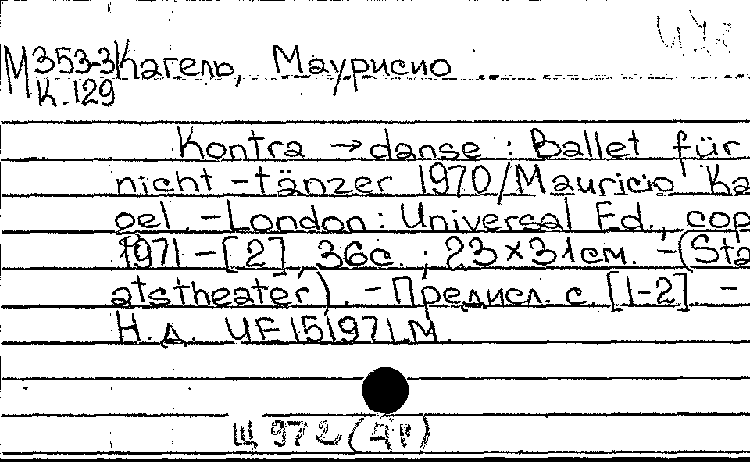 М 353-3 Кагель, Маурисио
К.129
Kontra → danse : Ballet für
nicht-tänzer 1970/Mauricio Ka
gel. - London : Universal Ed., cop.
1971 - [2], 36с. ; 23×31см. - (Sta
atstheater). - Предисл. с. [1-2] -
Н.д. UE 15197 LM.
Щ 972 (Ар)